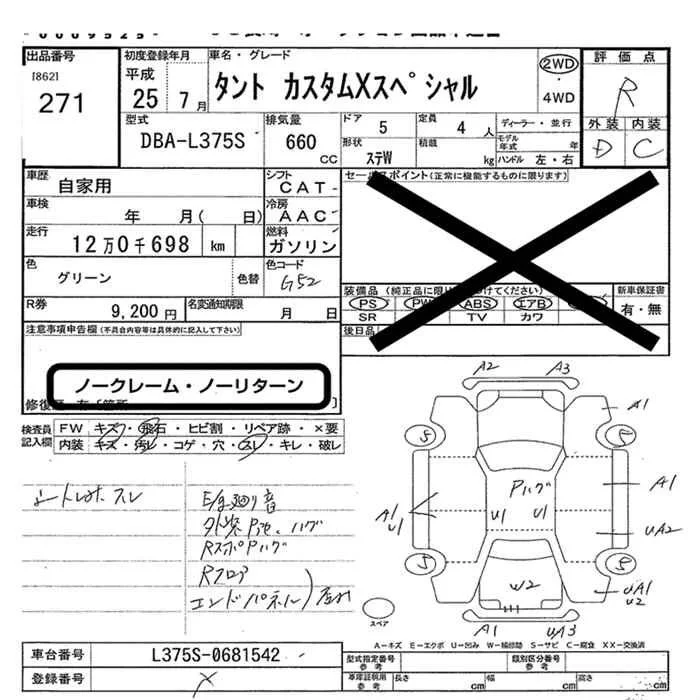 出品番号
[862]
271
初度登録年月
平成
25年7月
車名・グレード
タント カスタムXスペシャル
2WD
・
4WD
評価点
R
外装 内装
D C
型式
DBA-L375S
排気量
660
cc
ドア 5
定員 4 人
ディーラー・並行
形状 ステW
積載 kg
モデル年式 年
ハンドル 左・右
車歴
自家用
シフト
CAT-
車検
年 月( 日)
冷房
AAC
走行
12万0千698 km
燃料
ガソリン
色
グリーン
色替
色コード
G52
R券
9,200円
名変通知期限
月 日
セールスポイント(正常に機能するものに限ります)
装備品
PS PW ABS エアB
SR TV カワ
新車保証書
有・無
後日品
注意事項申告欄(不具合内容等は具体的に記入して下さい)
ノークレーム・ノーリターン
検査員
記入欄
FW キズ・飛石・ヒビ割・リペア跡・×要
内装 キズ・汚レ・コゲ・穴・スレ・キレ・破レ
E/g廻り音
RスポPハゲ
Rフロア
エンドパネル
A2 A3
A1
S S
Pハゲ
A1
U1
U1 U1
A1
UA2
S S
W2
UA1
U2
スペア
A1 UA3
A-キズ E-エクボ U-凹み W-補修跡 S-サビ C-腐食 XX-交換済
車台番号
L375S-0681542
登録番号
型式指定番号
参考
類別区分番号
参考
車庫証明用
参考
長さ cm
幅 cm
高さ cm